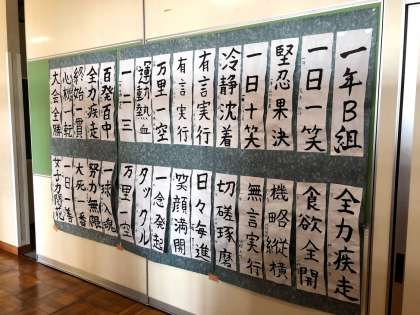 一年B組
一日一笑
堅忍果決
一日十笑
冷静沈着
有言実行
有言実行
万里一空
運動熱血
一二三
百発百中
全力疾走
終始一貫
心機一転
大会全勝
全力疾走
食欲全開
機略縦横
無言実行
切磋琢磨
日々毎進
笑顔満開
一念発起
タックル
万里一空
一球入魂
努力無限
犬死一番
一日一番